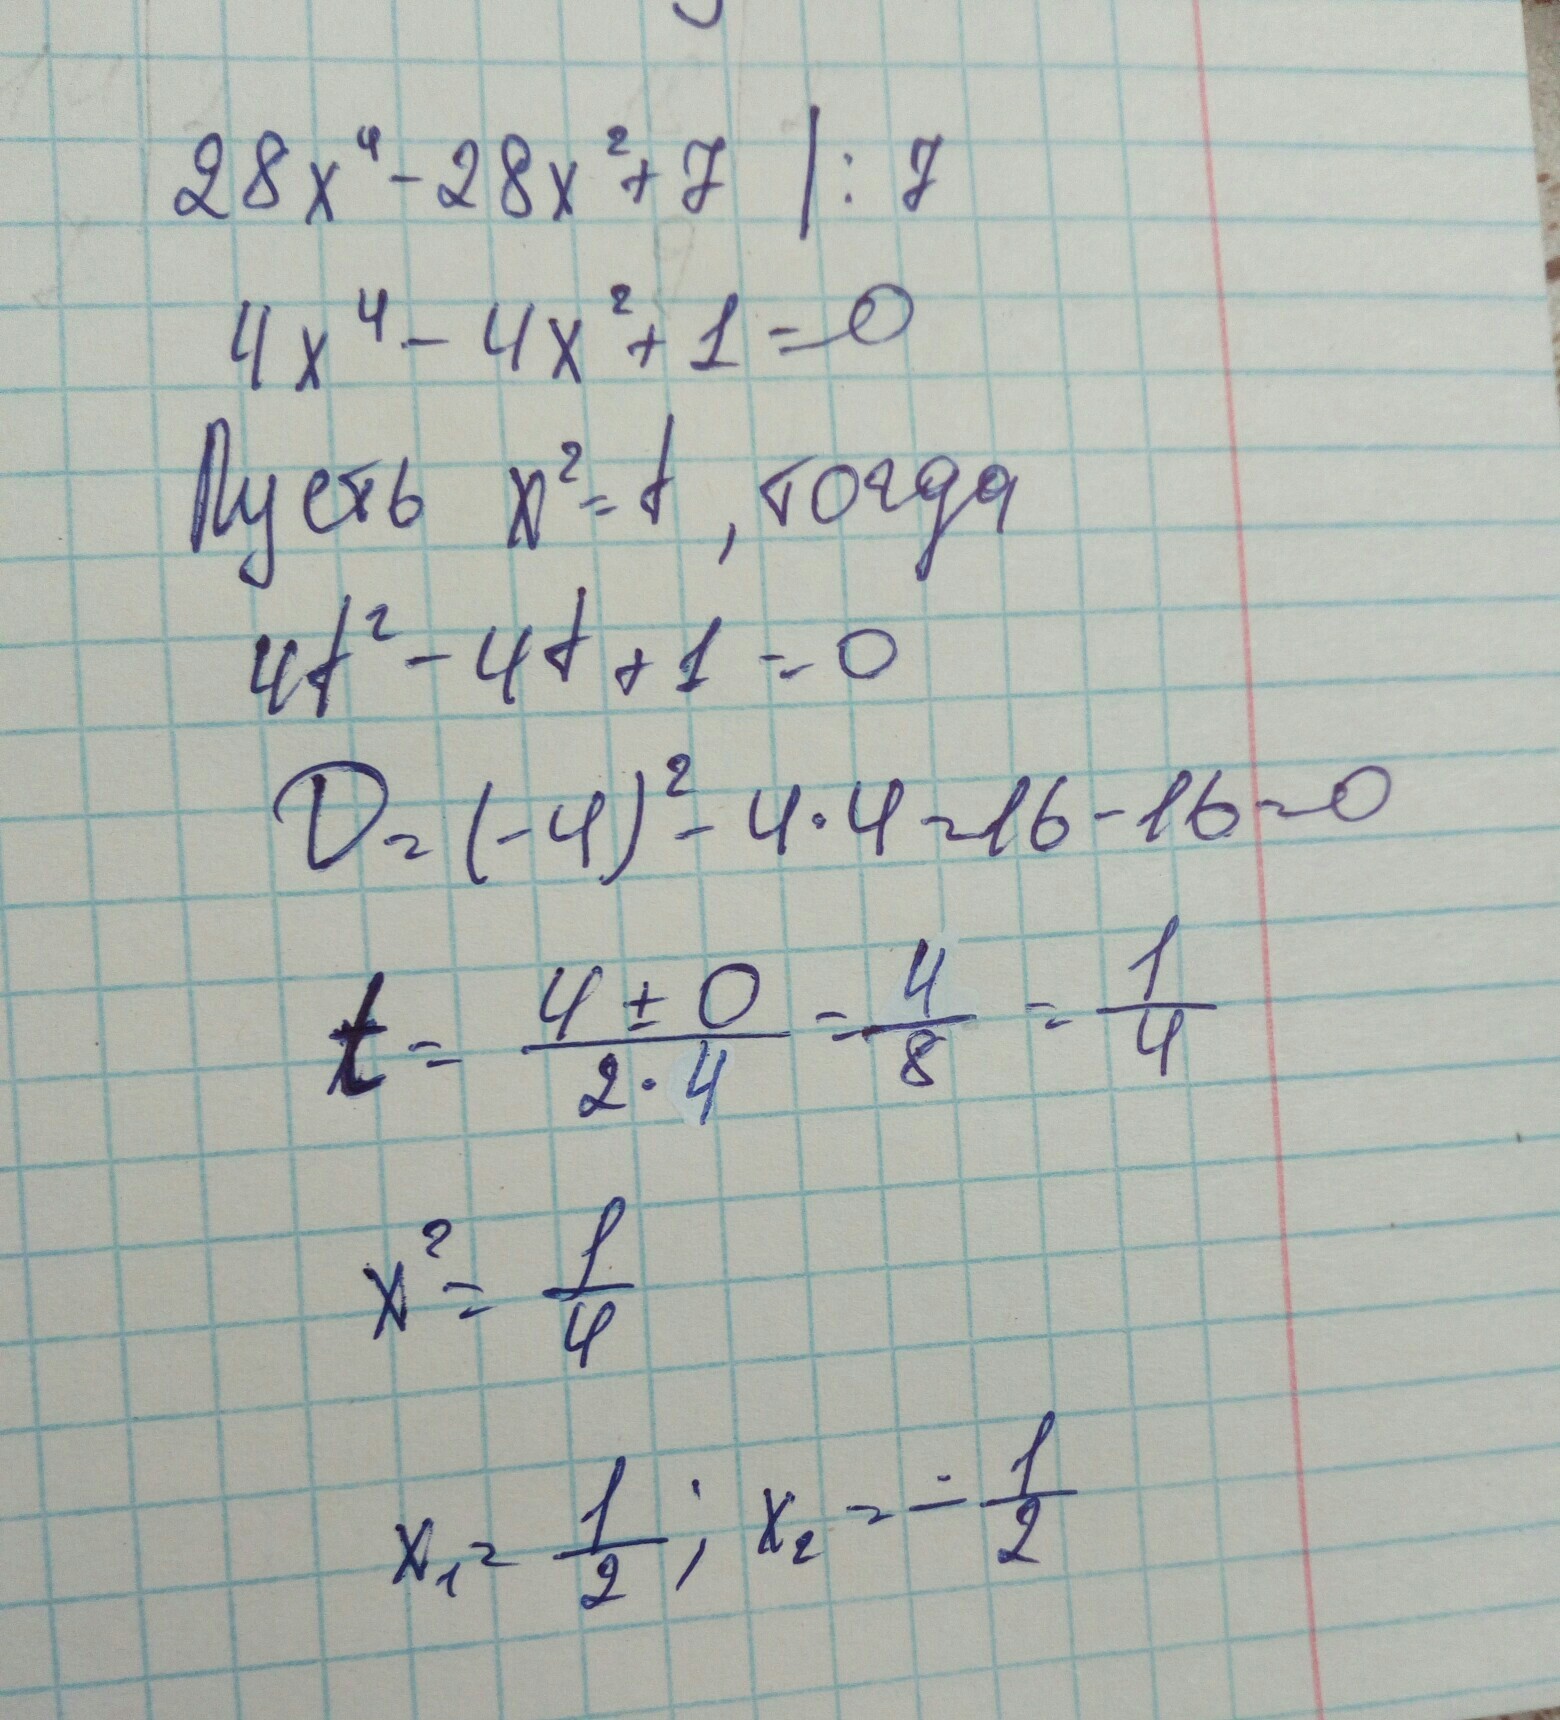 28x⁴-28x²+7 |: 7
4x⁴- 4x²+ 1 = 0
Пусть x²= t, тогда
4t²- 4t + 1 = 0
D = (-4)²- 4·4 = 16 - 16 = 0
t = (4 ± 0)/(2·4) = 4/8 = 1/4
x² = 1/4
x₁ = 1/2; x₂ = - 1/2